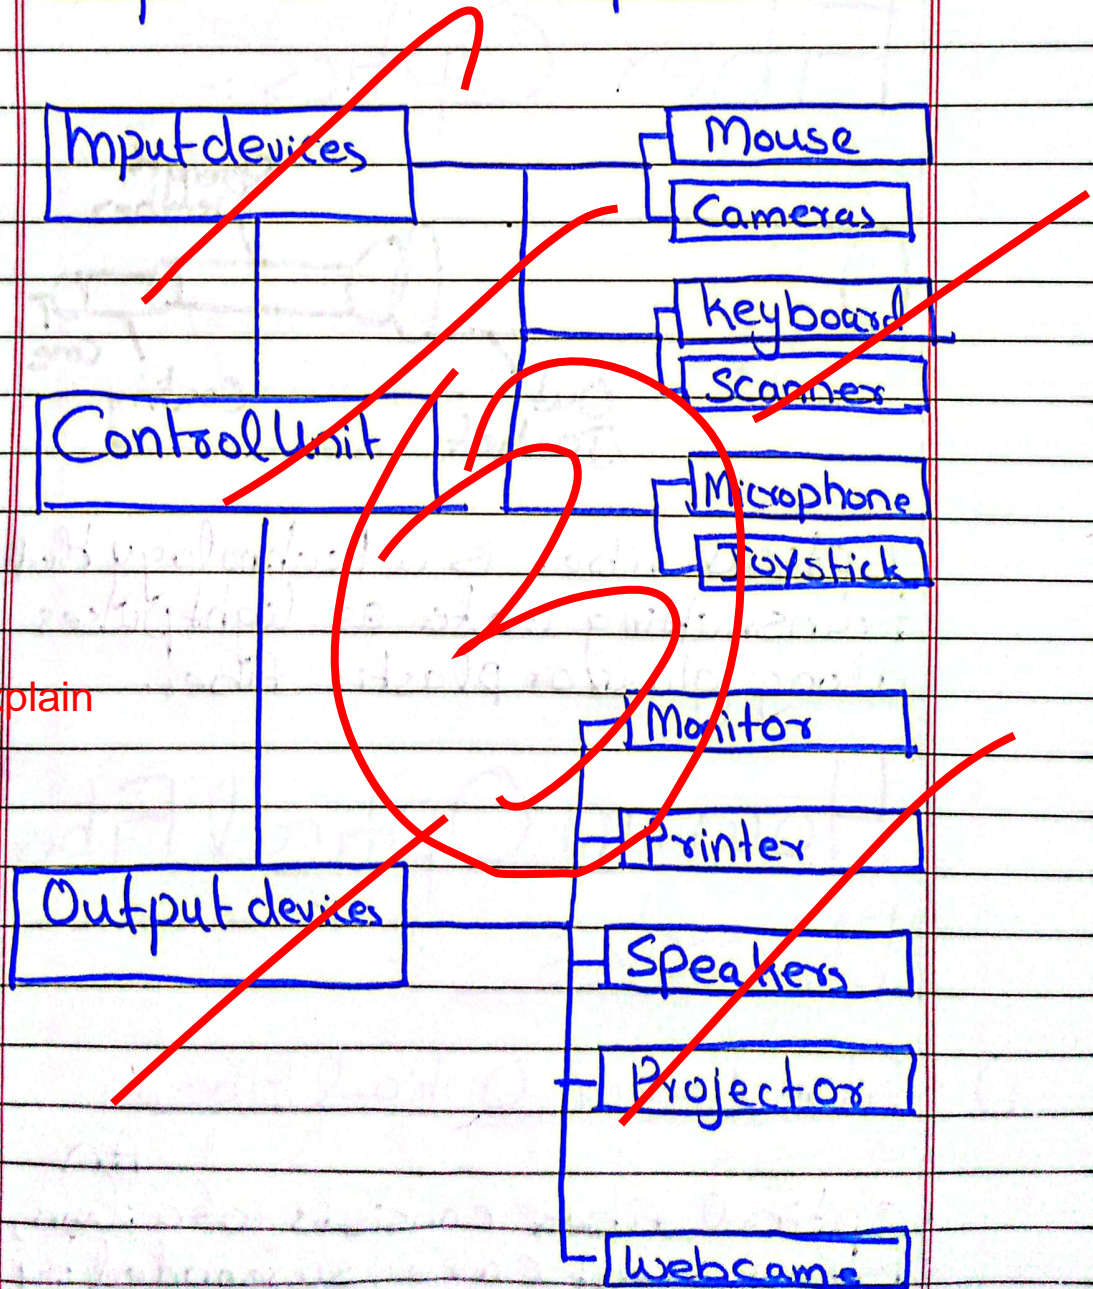 Input devices
Mouse
Cameras
Keyboard
Scanner
Control Unit
Microphone
Joystick
plain
Monitor
Printer
Output devices
Speakers
Projector
Webcams
3